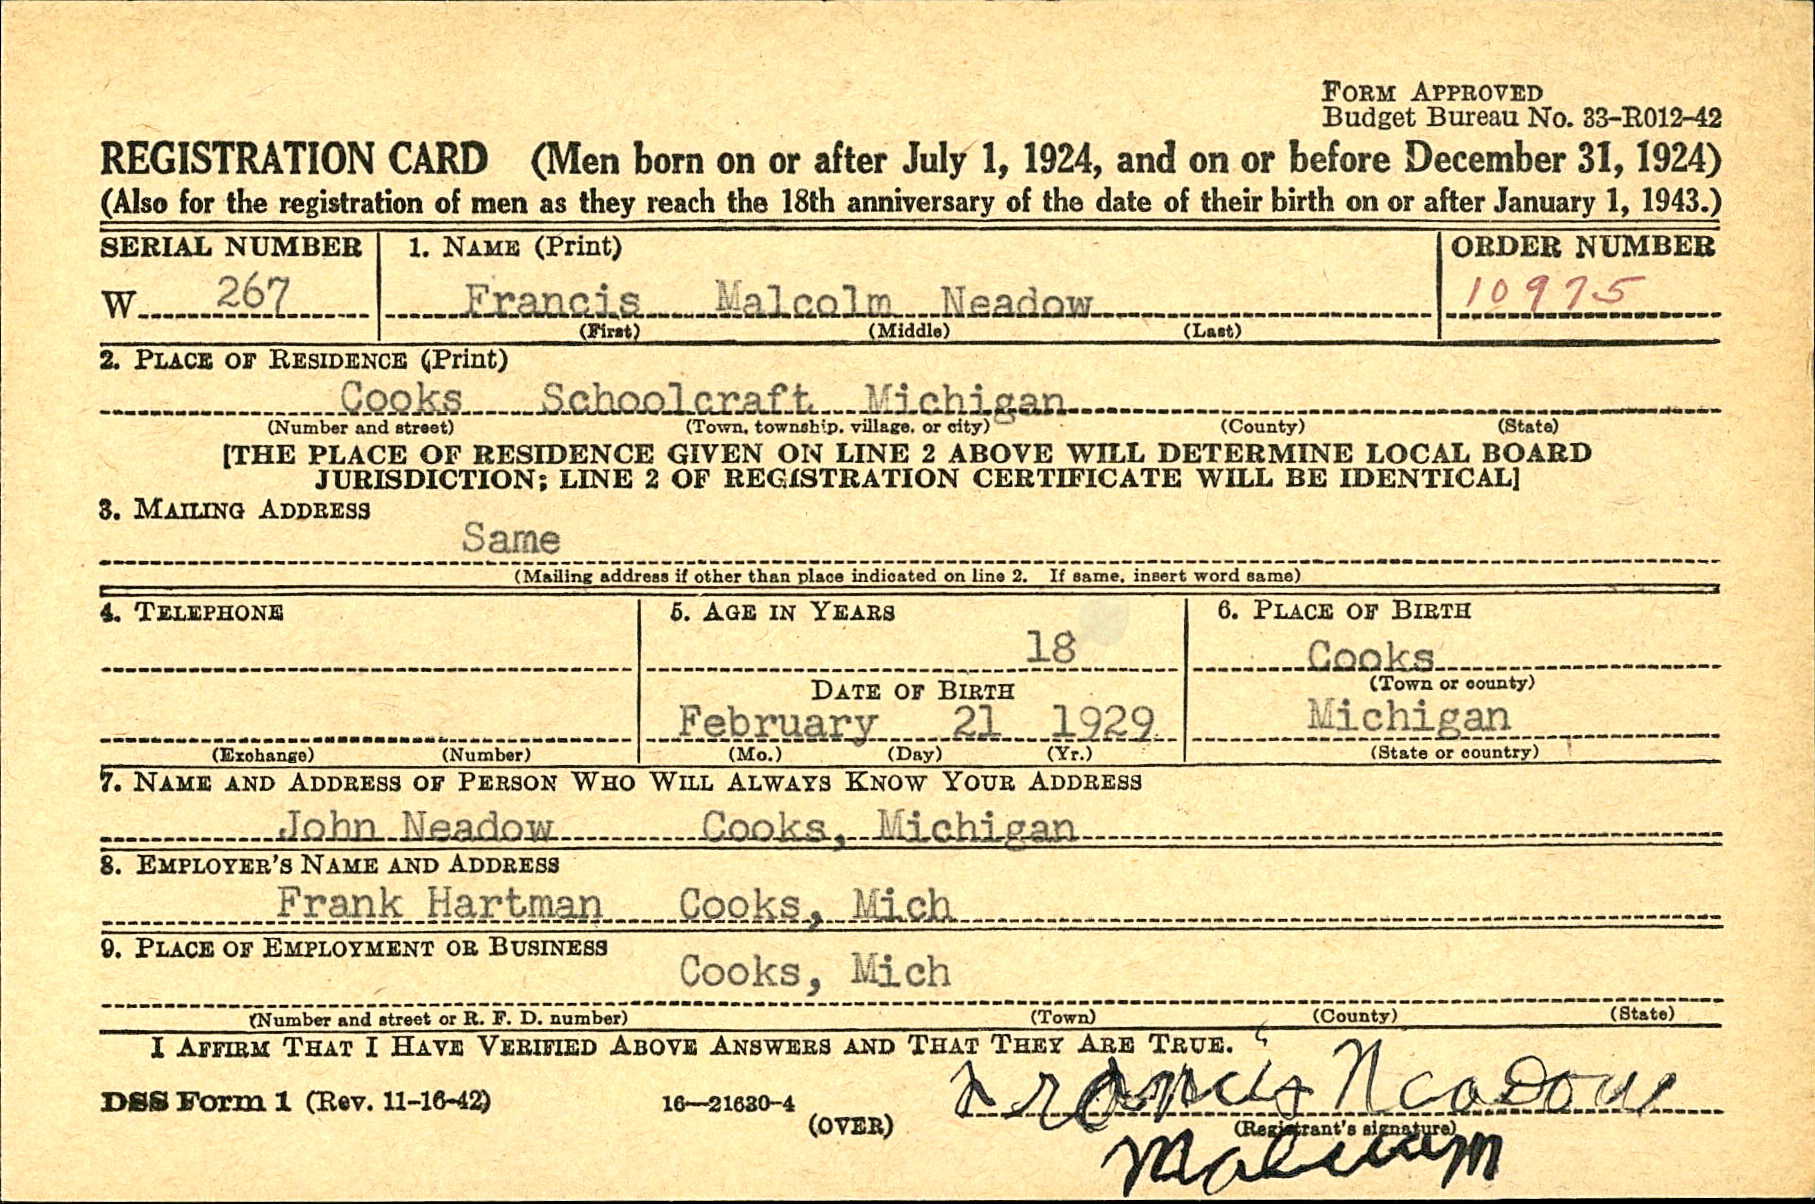 FORM APPROVED
Budget Bureau No. 33–R012–42
REGISTRATION CARD (Men born on or after July 1, 1924, and on or before December 31, 1924)
(Also for the registration of men as they reach the 18th anniversary of the date of their birth on or after January 1, 1943.)
SERIAL NUMBER 1. NAME (Print) ORDER NUMBER
W 267 Francis Malcolm Neadow 10975
(First) (Middle) (Last)
2. PLACE OF RESIDENCE (Print)
Cooks Schoolcraft Michigan
(Number and street) (Town, township, village, or city) (County) (State)
[THE PLACE OF RESIDENCE GIVEN ON LINE 2 ABOVE WILL DETERMINE LOCAL BOARD
JURISDICTION; LINE 2 OF REGISTRATION CERTIFICATE WILL BE IDENTICAL]
3. MAILING ADDRESS
Same
(Mailing address if other than place indicated on line 2. If same, insert word same)
4. TELEPHONE 5. AGE IN YEARS 6. PLACE OF BIRTH
18 Cooks
DATE OF BIRTH (Town or county)
February 21 1929 Michigan
(Exchange) (Number) (Mo.) (Day) (Yr.) (State or country)
7. NAME AND ADDRESS OF PERSON WHO WILL ALWAYS KNOW YOUR ADDRESS
John Neadow Cooks, Michigan
8. EMPLOYER'S NAME AND ADDRESS
Frank Hartman Cooks, Mich
9. PLACE OF EMPLOYMENT OR BUSINESS
Cooks, Mich
(Number and street or R. F. D. number) (Town) (County) (State)
I AFFIRM THAT I HAVE VERIFIED ABOVE ANSWERS AND THAT THEY ARE TRUE.
DSS Form 1 (Rev. 11-16-42) 16—21630-4 (OVER) Francis Neadow
(Registrant's signature)
Malcolm